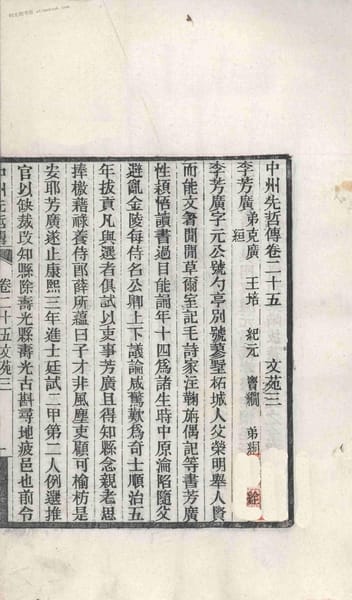 中州先哲傳卷二十五 文苑三
李芳廣 弟克廣 王培 紀元 竇 弟
李芳廣字元公號勺亭別號蓼墅柘城人父榮明舉人賢
而能文著閒閒草爾室記毛詩家注鞠旃偶記等書芳廣
性穎悟讀書過目能誦年十四爲諸生時中原淪陷隨父
避亂金陵每侍名公卿上下議論咸驚歎爲奇士順治五
年拔貢凡與選者俱試以吏事芳廣且得知縣念親老思
捧檄藉祿養侍郎薛所蘊曰子才非風塵吏顧可榆枋是
安耶芳廣遂止康熙三年進士廷試二甲第二人例選推
官以缺裁改知縣除壽光縣壽光古斟尋地疲邑也前令
中州先哲傳 卷二十五文苑三 一